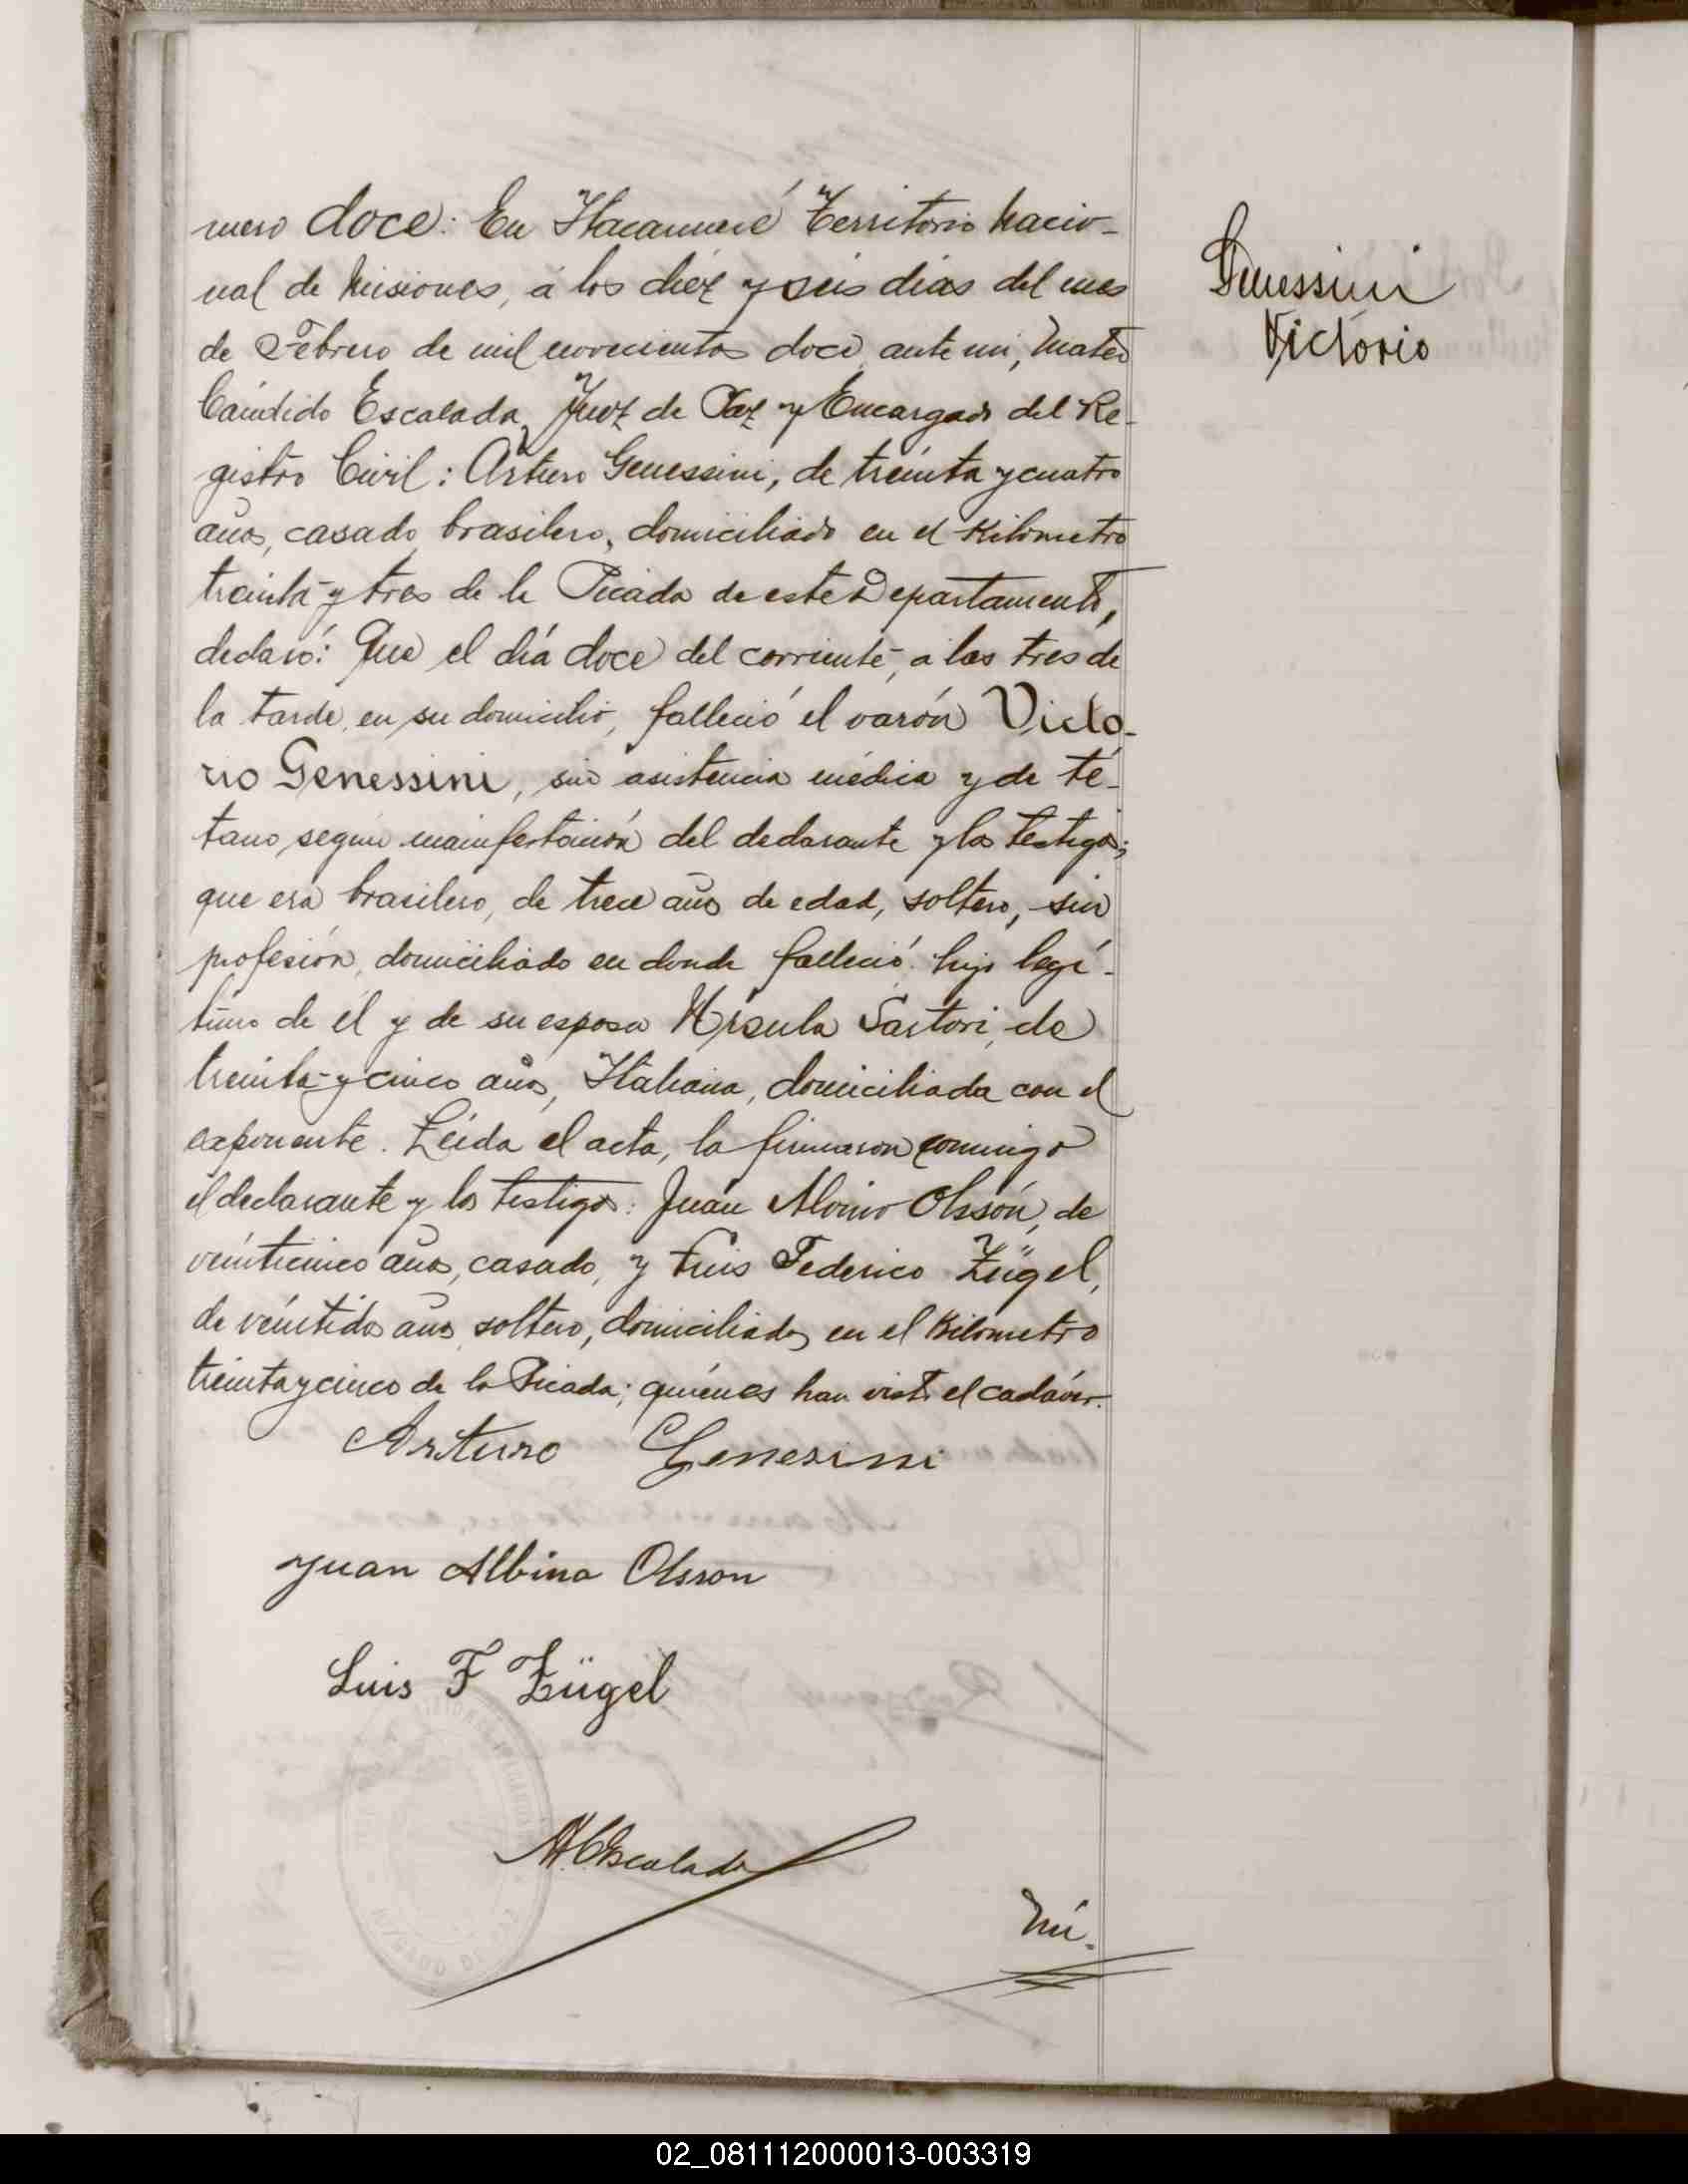 mero doce: En Itacaruaré Territorio Nacio-
nal de Misiones, á los diez y seis dias del mes
de Febrero de mil novecientos doce, ante mi, Mateo
Cándido Escalada, Juez de Paz y Encargado del Re-
gistro Civil: Arturo Genessini, de treinta y cuatro
años, casado, brasilero, domiciliado en el Kilometro
treinta y tres de la Picada de este Departamento,
declaró: Que el día doce del corriente, a las tres de
la tarde, en su domicilio, falleció el varón Victo-
rio Genessini, sin asistencia médica y de té-
tano, según manifestación del declarante y los testigos;
que era brasilero, de trece años de edad, soltero, sin
profesión, domiciliado en donde falleció: hijo legí-
timo de él y de su esposa Ursula Sartori, de
treinta y cinco años, Italiana, domiciliada con el
exponente. Leída el acta, la firmaron conmigo
el declarante y los testigos: Juan Alvino Olssón, de
veinticinco años, casado, y Luis Federico Zügel,
de veintidos años, soltero, domiciliados en el Kilometro
treinta y cinco de la Picada; quiénes han visto el cadáver.
Arturo Genesini
Juan Albino Olsson
Luis F Zügel
M. C. Escalada
Nú.
Genessini
Victorio
02_081112000013-003319